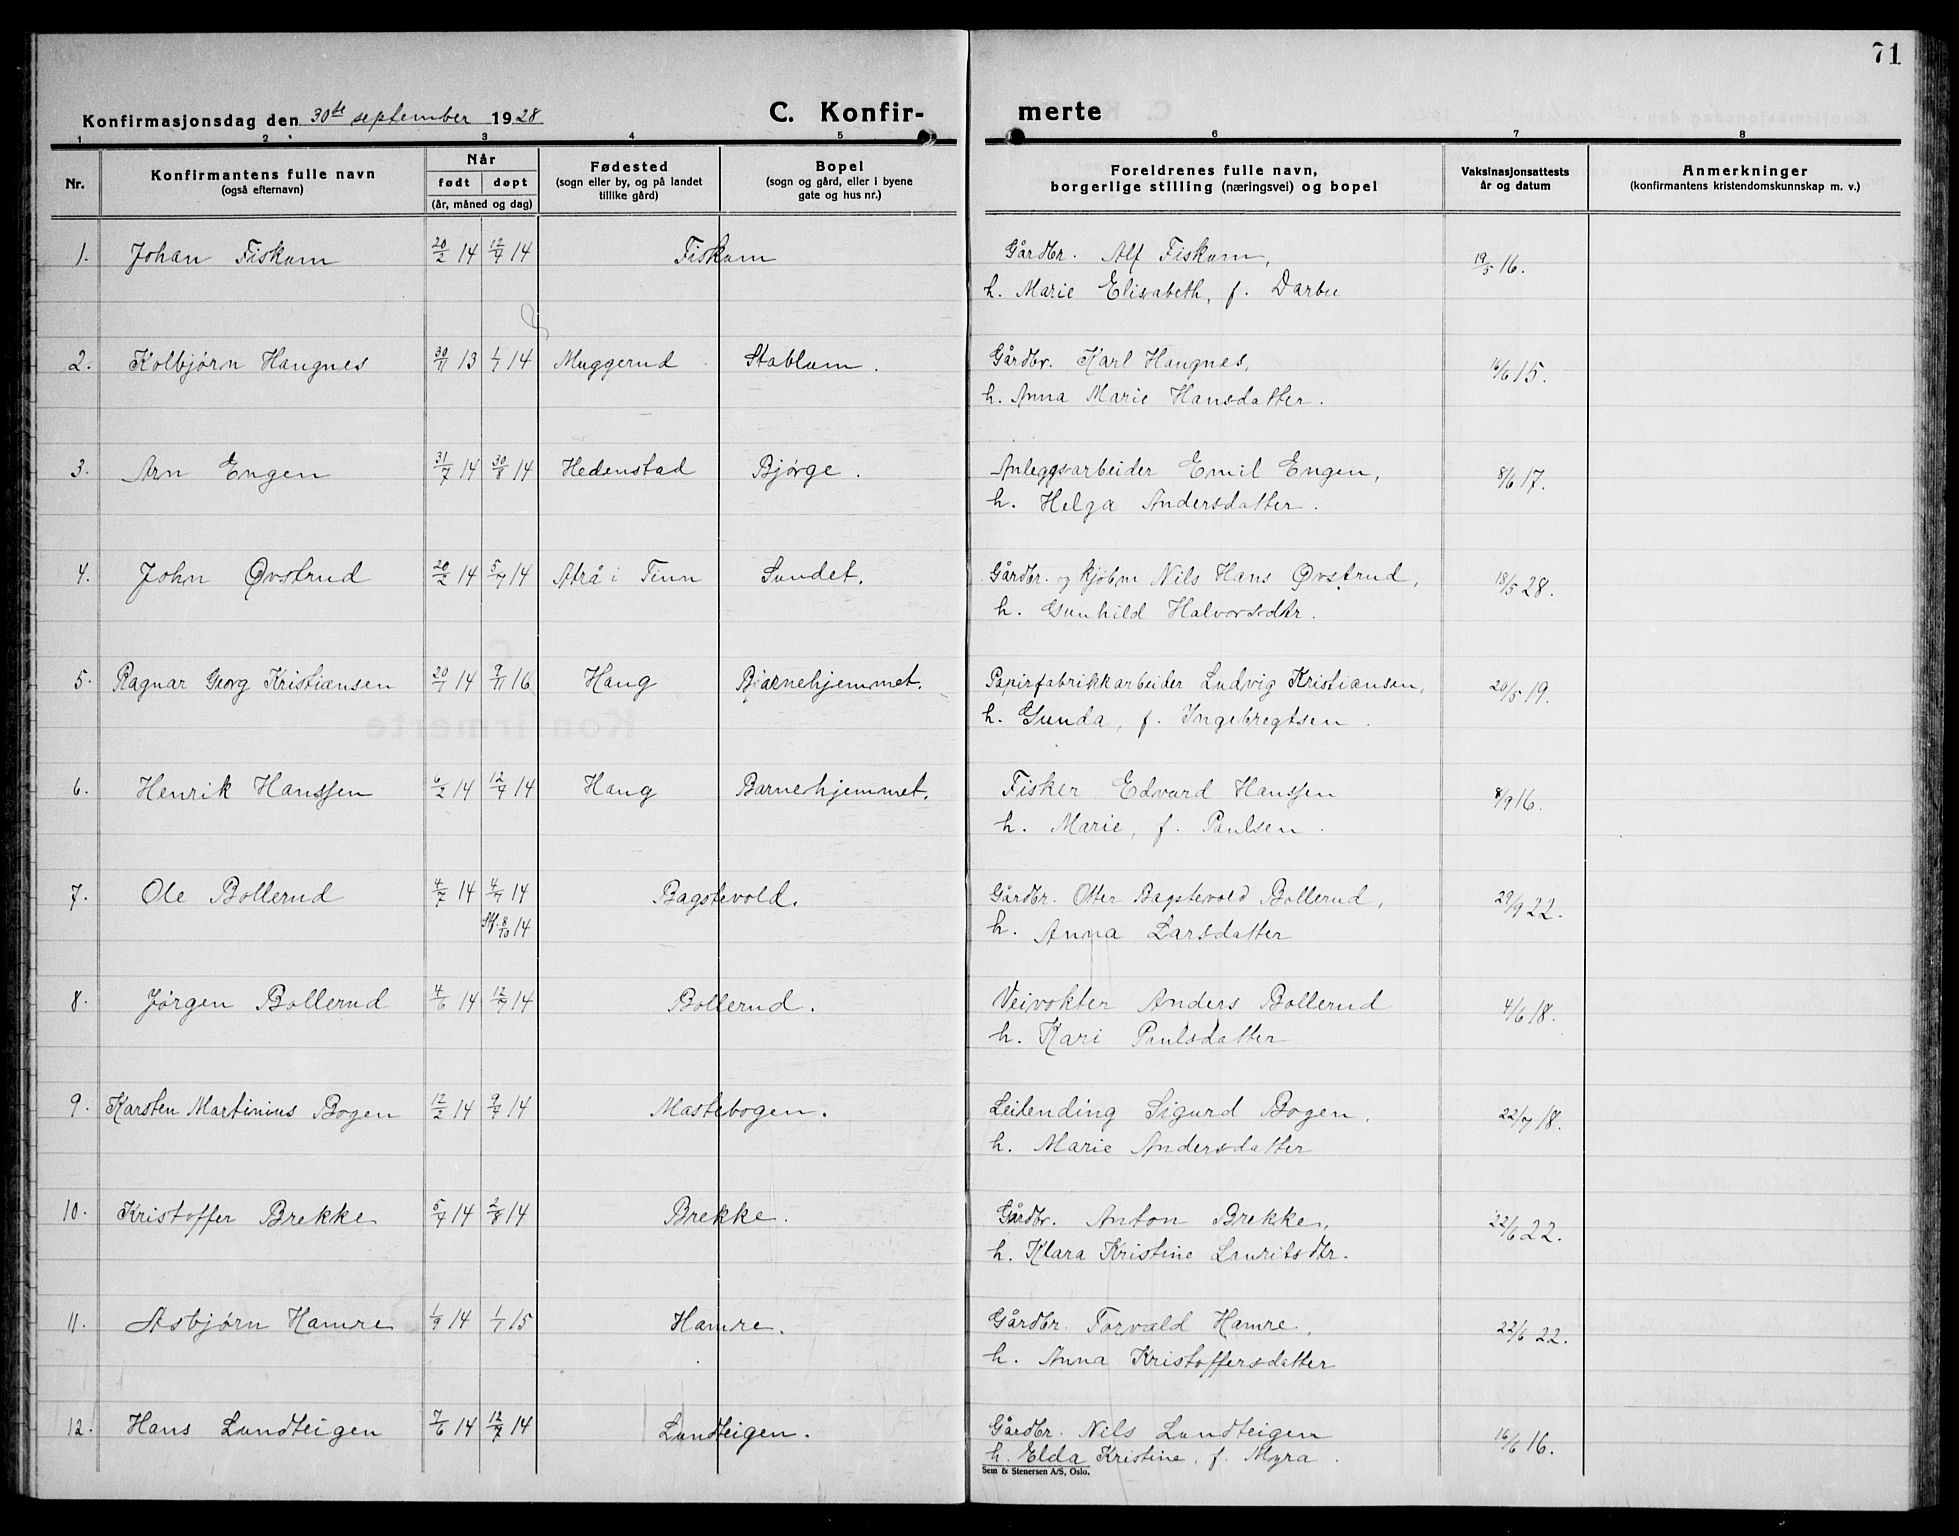 71
Konfirmasjonsdag den 30te september 1928
C. Konfir- merte
1 2 3 4 5 6 7 8
Nr.
Konfirmantens fulle navn
(også efternavn)
Når
født døpt
(år, måned og dag)
Fødested
(sogn eller by, og på landet
tillike gård)
Bopel
(sogn og gård, eller i byene
gate og hus nr.)
Foreldrenes fulle navn,
borgerlige stilling (næringsvei) og bopel
Vaksinasjonsattests
år og datum
Anmerkninger
(konfirmantens kristendomskunnskap m. v.)
1. Johan Fiskum 20/2 14 12/7 14 Fiskum Gårdbr. Alf Fiskum, 19/5 16.
h. Marie Elisabeth, f. Darbu
2. Kolbjørn Haugnes 30/11 13 1/1 14 Muggerud Stablum. Gårdbr. Karl Haugnes, 16/6 15.
h. Anna Marie Hansdatter.
3. Arn Engen 31/7 14 30/8 14 Hedenstad Bjørge. Anleggsarbeider Emil Engen, 8/6 17.
h. Helga Andersdatter.
4. John Øvstrud 20/2 14 5/7 14 Atrå i Tinn Sundet. Gårdbr. og kjøbm Nils Hans Øvstrud, 18/5 28.
h. Gunhild Halvorsdtr.
5. Ragnar Georg Kristiansen 20/1 14 9/11 16 Haug Barnehjemmet. Papirfabrikkarbeider Ludvig Kristiansen, 20/5 19.
h. Gunda, f. Ingebregtsen.
6. Henrik Hanssen 6/2 14 12/7 14 Haug Barnehjemmet. Fisker Edvard Hanssen 8/9 16.
h. Marie, f. Paulsen.
7. Ole Bollerud 4/7 14 4/7 14 Bagstevold. Gårdbr. Otter Bagstevold Bollerud, 29/9 22.
8/10 14 h. Anna Larsdatter
8. Jørgen Bollerud 4/6 14 12/7 14 Bollerud. Veivokter Anders Bollerud 4/6 18.
h. Kari Paulsdatter
9. Karsten Martinius Bogen 12/2 14 9/7 14 Mastebogen. Leilending Sigurd Bogen, 22/7 18.
h. Marie Andersdatter
10. Kristoffer Brekke 5/7 14 2/8 14 Brekke. Gårdbr. Anton Brekke, 22/6 22.
h. Klara Kristine Lauritsdtr.
11. Asbjørn Hamre 1/9 14 1/1 15 Hamre. Gårdbr. Torvald Hamre, 22/6 22.
h. Anna Kristoffersdatter
12. Hans Lundteigen 7/6 14 12/7 14 Lundteigen. Gårdbr. Nils Lundteigen 16/6 16.
h. Elda Kristine, f. Myra.
Sem & Stenersen A/S, Oslo.